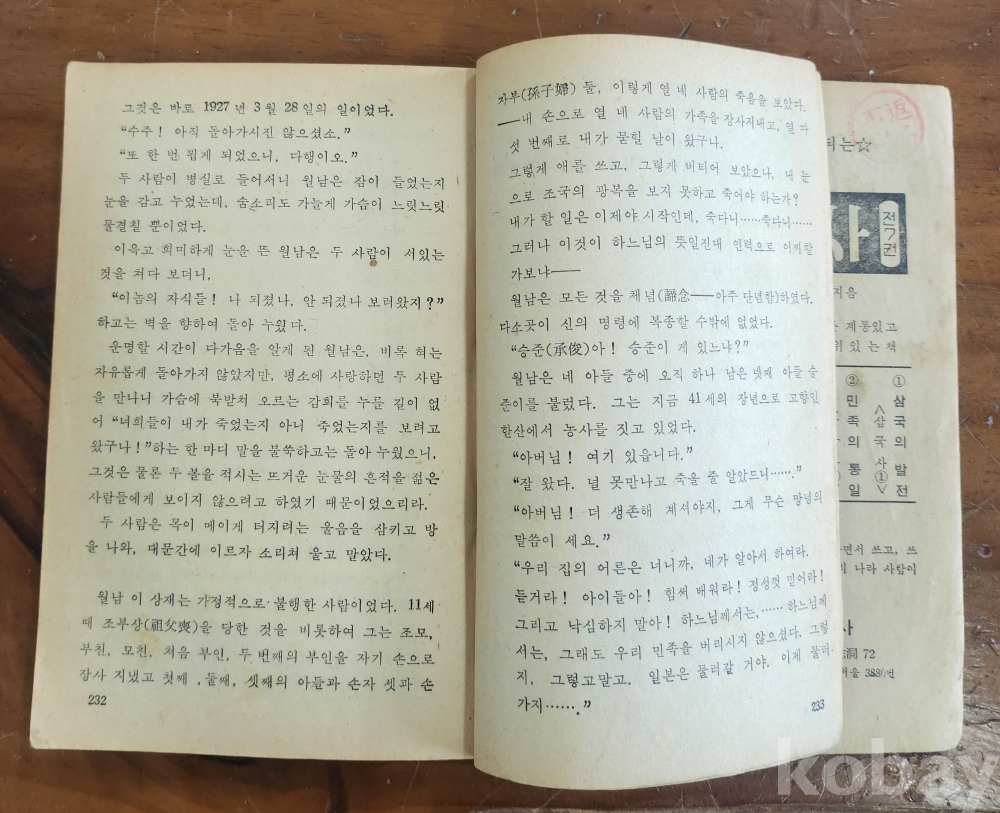 그것은 바로 1927년 3월 28일의 일이었다.
“수주! 아직 돌아가시진 않으셨소.”
“또 한 번 뵙게 되었으니, 다행이오.”
두 사람이 병실로 들어서니 월남은 잠이 들었는지
눈을 감고 누었는데, 숨소리도 가늘게 가슴이 느릿느릿
물결칠 뿐이었다.
이윽고 희미하게 눈을 뜬 월남은 두 사람이 서있는
것을 쳐다 보더니,
“이놈의 자식들! 나 되졌나, 안 되졌나 보러왔지?”
하고는 벽을 향하여 돌아 누웠다.
운명할 시간이 다가옴을 알게 된 월남은, 비록 혀는
자유롭게 돌아가지 않았지만, 평소에 사랑하던 두 사람
을 만나니 가슴에 북받쳐 오르는 감회를 누를 길이 없
어 “너희들이 내가 죽었는지 아니 죽었는지를 보려고
왔구나!”하는 한 마디 말을 불쑥하고는 돌아 누웠으니,
그것은 물론 두 볼을 적시는 뜨거운 눈물의 흔적을 젊은
사람들에게 보이지 않으려고 하였기 때문이었으리라.
두 사람은 목이 메이게 터지려는 울음을 삼키고 방
을 나와, 대문간에 이르자 소리쳐 울고 말았다.
월남 이 상재는 가정적으로 불행한 사람이었다. 11세
때 조부상(祖父喪)을 당한 것을 비롯하여 그는 조모,
부친, 모친, 처음 부인, 두 번째의 부인을 자기 손으로
장사 지냈고 첫째 ,둘째, 셋째의 아들과 손자 셋과 손
232
자부(孫子婦) 둘, 이렇게 열 네 사람의 죽음을 보았다.
――내 손으로 열 네 사람의 가족을 장사지내고, 열 다
섯 번째로 내가 묻힐 날이 왔구나.
그렇게 애를 쓰고, 그렇게 버티어 보았으나, 내 눈
으로 조국의 광복을 보지 못하고 죽어야 하는가?
내가 할 일은 이제야 시작인데, 죽다니……죽다니……
그러나 이것이 하느님의 뜻일진대 인력으로 어찌할
가보냐――
월남은 모든 것을 체념(諦念――아주 단념함)하였다.
다소곳이 신의 명령에 복종할 수밖에 없었다.
“승준(承俊)아! 승준이 게 있느냐?”
월남은 네 아들 중에 오직 하나 남은 넷째 아들 승
준이를 불렀다. 그는 지금 41세의 장년으로 고향인
한산에서 농사를 짓고 있었다.
“아버님! 여기 있읍니다.”
“잘 왔다. 널 못만나고 죽을 줄 알았드니……”
“아버님! 더 생존해 계셔야지, 그게 무슨 망녕의
말씀이 세요.”
“우리 집의 어른은 너니까, 네가 알아서 하여라.
듣거라! 아이들아! 힘써 배워라! 정성껏 믿어라!
그리고 낙심하지 말아! 하느님께서는,…… 하느님께
서는, 그래도 우리 민족을 버리시지 않으셨다. 그렇
지, 그렇고말고. 일본은 물러갈 거야. 이제 물러
가지…….”
233
不返
되는☆
사
전7권
지음
계통있고
위 있는 책
① 삼국의 발전
② 민족의 통일
<삼국사①>
면서 쓰고, 쓰
나라 사람이
사
洞 72
서울 3880번
kobay